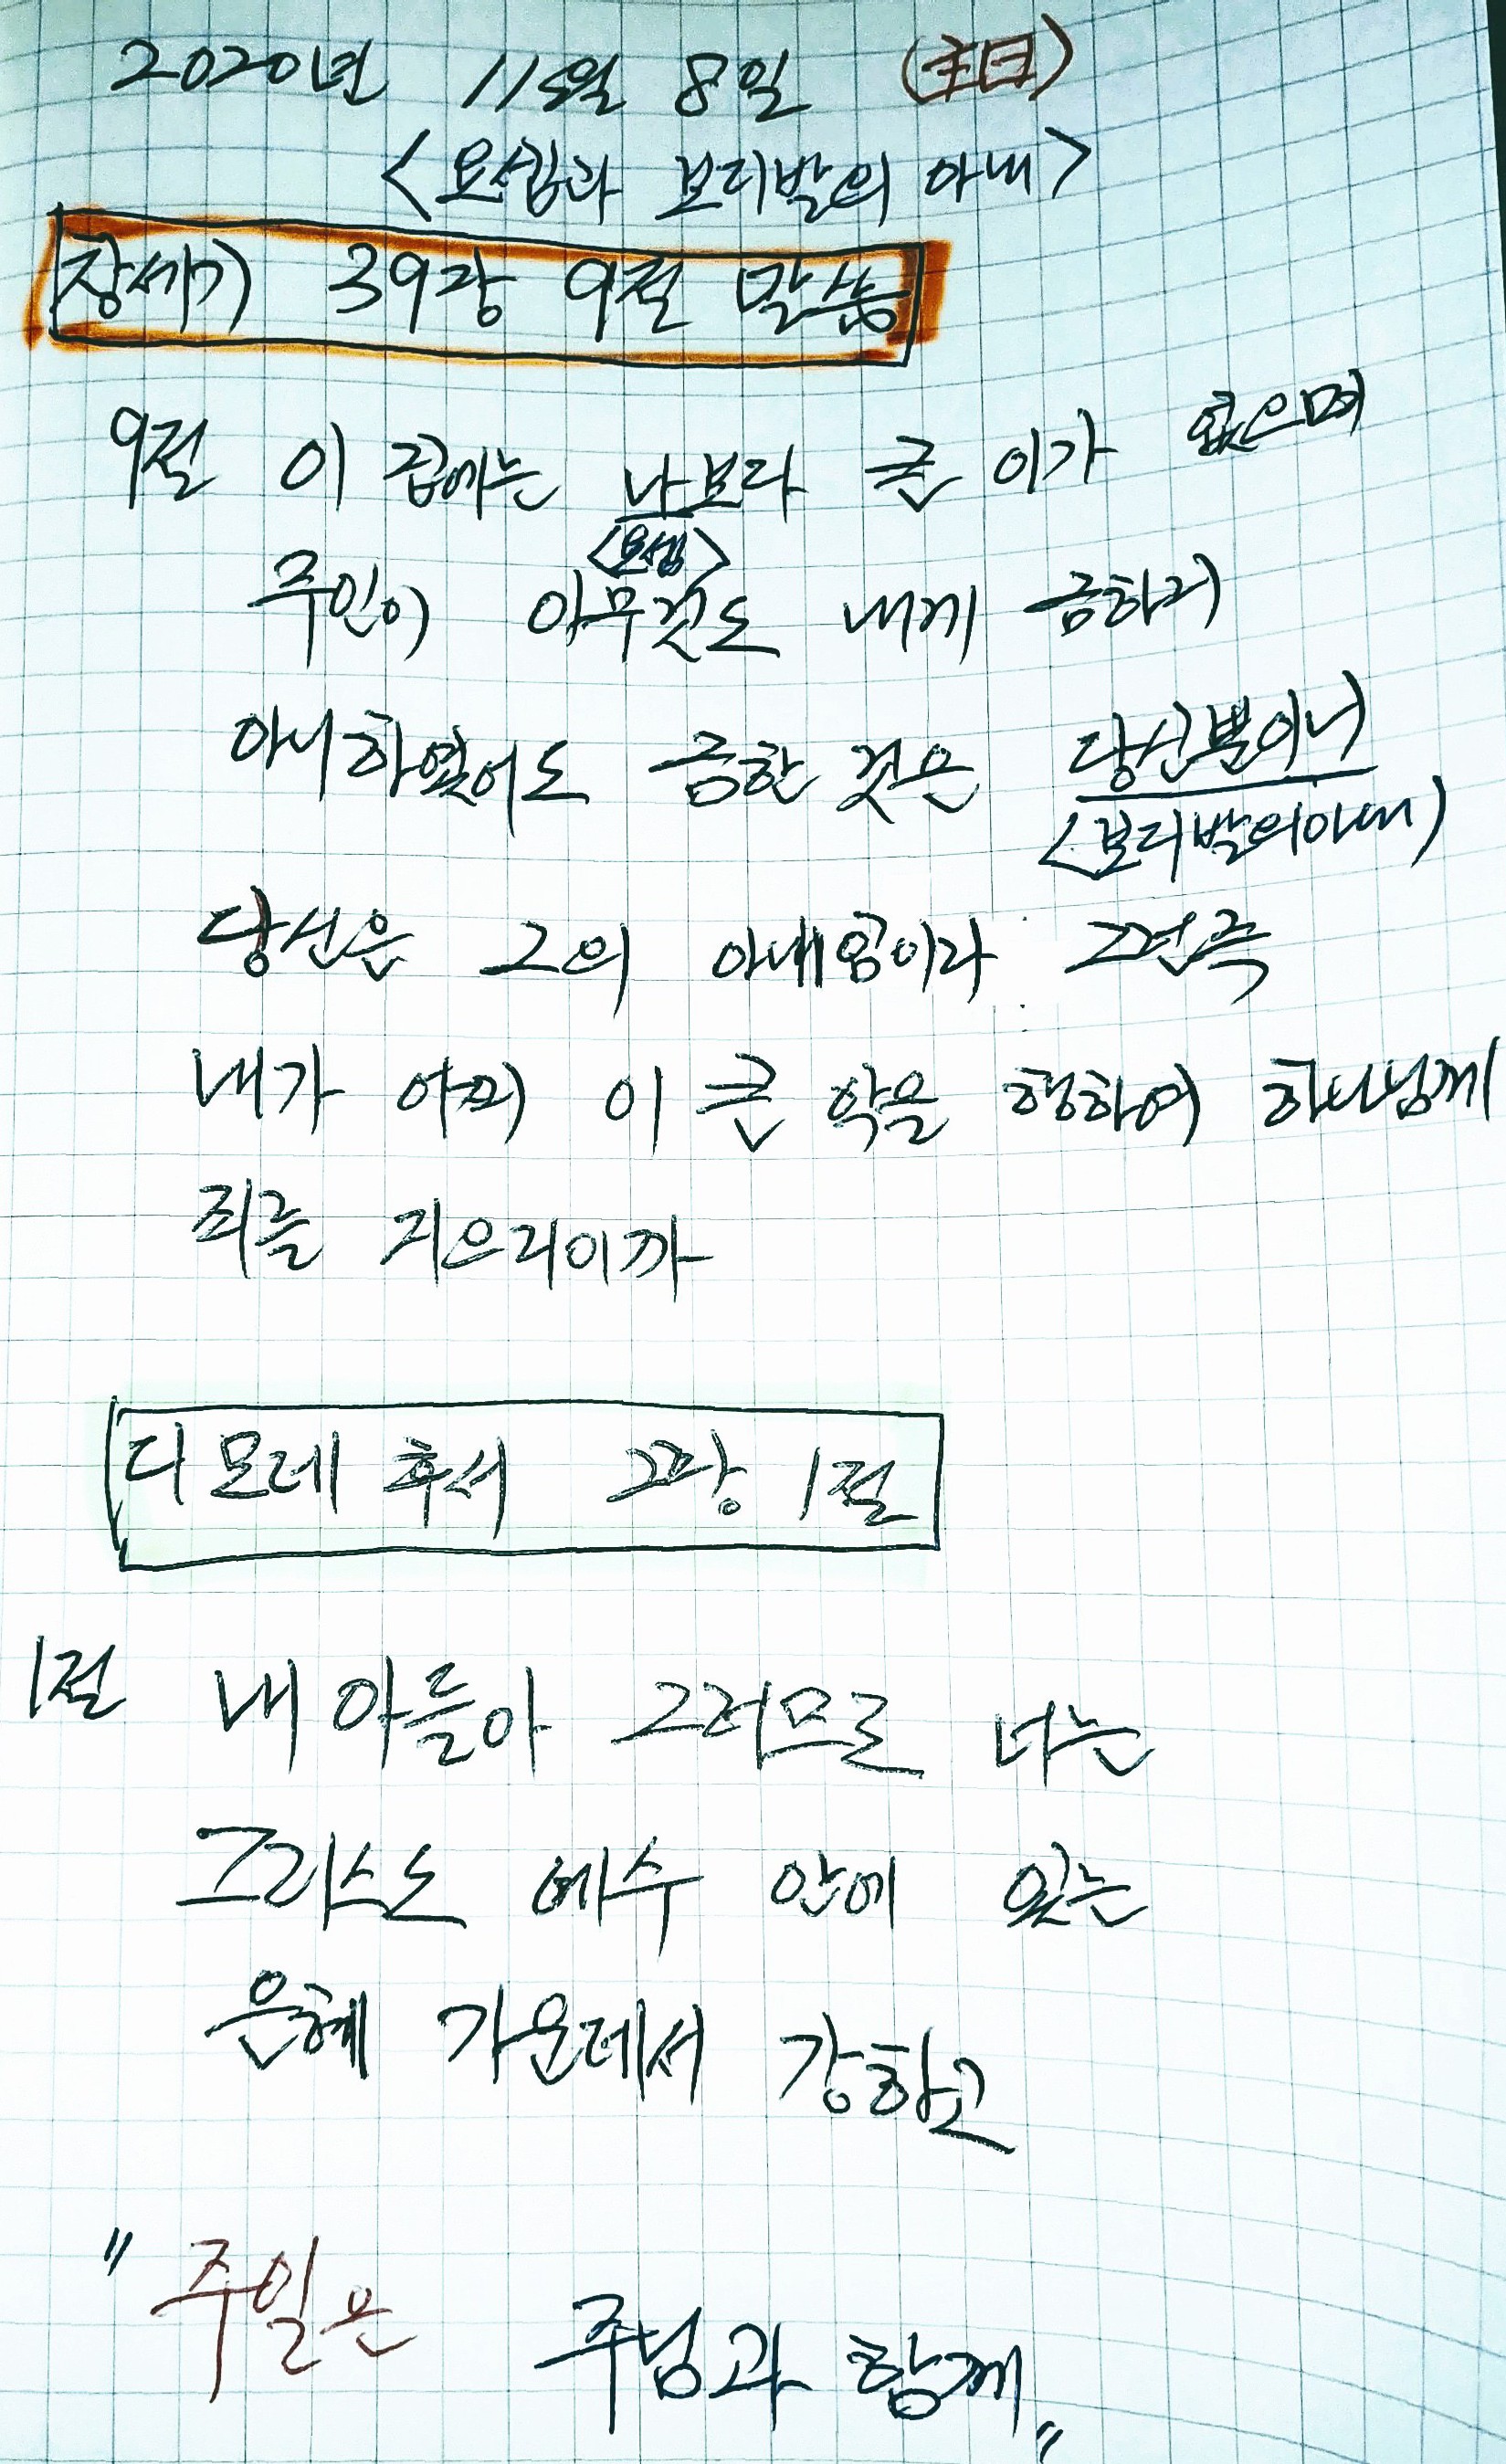 2020년 11월 8일 (主日)
<요셉과 보디발의 아내>
창세기 39장 9절 말씀
9절 이 집에는 나보다 큰 이가 없으며
<요셉>
주인이 아무것도 내게 금하지
아니하였어도 금한 것은 당신뿐이니
<보디발의아내>
당신은 그의 아내임이라 그런즉
내가 어찌 이 큰 악을 행하여 하나님께
죄를 지으리이까
디모데 후서 2장 1절
1절 내 아들아 그러므로 너는
그리스도 예수 안에 있는
은혜 가운데서 강하고
"주일은 주님과 함께"